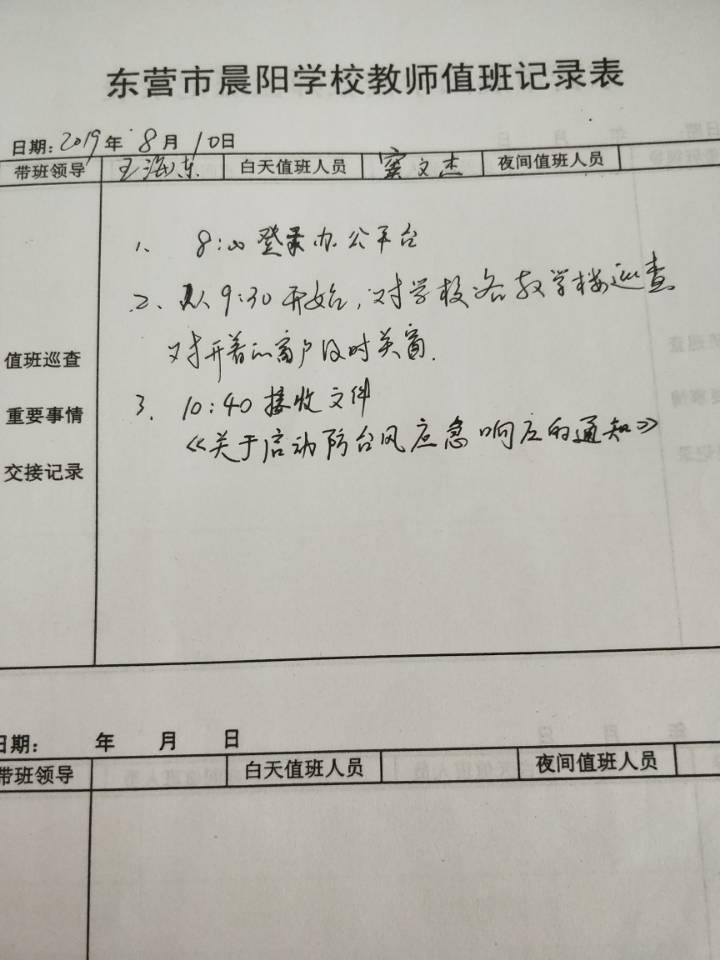 东营市晨阳学校教师值班记录表
日期:2019年 8月 10日
带班领导 王海东 白天值班人员 窦文杰 夜间值班人员
1、 8:00 登录办公平台
2、从9:30开始,对学校各教学楼巡查
对开着的窗户及时关窗.
3. 10:40 接收文件
《关于启动防台风应急响应的通知》
值班巡查
重要事情
交接记录
日期: 年 月 日
带班领导 白天值班人员 夜间值班人员